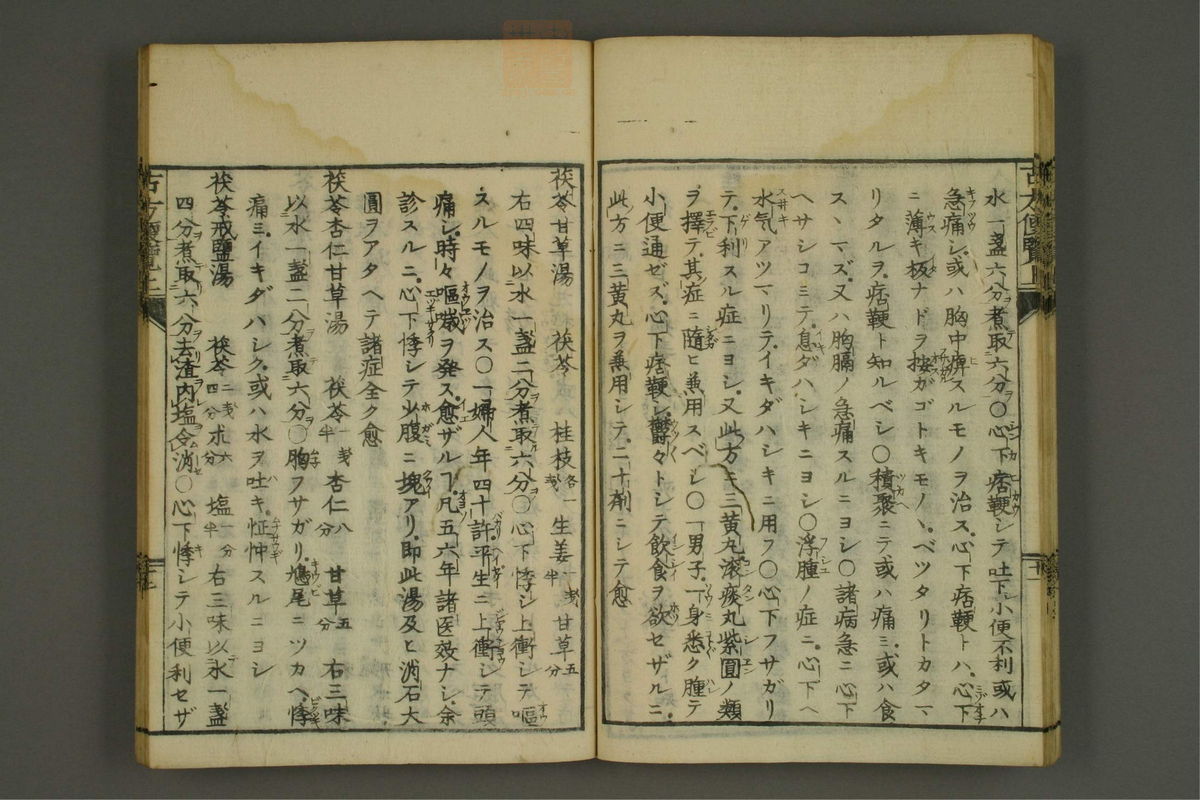 水一盞六分煮取六分〇心下痞鞕シテ吐下シ小便不利或ハ
急痛シ或ハ胸中痺スルモノヲ治ス心下痞鞕トハ心下
ニ薄キ板ナドヲ按ガゴトキモノヽベッタリトカタマ
リタルヲ痞鞕ト知ルベシ〇積聚ニテ或ハ痛ミ或ハ食
スヽマズ又ハ胸膈ノ急痛スルニヨシ〇諸病急ニ心下
ヘサシコミテ息ダハシキニヨシ〇浮腫ノ症ニ心下ヘ
水気アツマリテイキダハシキニ用フ〇心下フサガリ
テ下利スル症ニヨシ又此方キ三黄丸滚痰丸紫圓ノ類
ヲ擇テ其症ニ隨ヒ兼用スベシ〇一男子一身悉ク腫テ
小便通ゼズ心下痞鞕シ欝々トシテ飲食ヲ欲セザルニ
此方ニ三黄丸ヲ兼用シテ二十剤ニシテ愈
茯苓甘草湯 茯苓 桂枝各一戔 生姜一戔半 甘草五分
右四味以水一盞二分煮取六分〇心下悸シ上衝シテ嘔
スルモノヲ治ス〇一婦人年四十許平生ニ上衝シテ頭
痛シ時々嘔噦ヲ発ス愈ザルヿ凡五六年諸医效ナシ余
診スルニ心下悸シテ少腹ニ塊アリ即此湯及ヒ消石大
圓ヲアタヘテ諸症全ク愈
茯苓杏仁甘草湯 茯苓一戔半 杏仁八分 甘草五分 右三味
以水一盞二分煮取六分〇胸フサガリ鳩尾ニツカヘ悸
痛ミイキダハシク或ハ水ヲ吐キ怔忡スルニヨシ
茯苓戎鹽湯 茯苓二戔四分 朮六分 塩一分半 右三味以水一盞
四分煮取六八分去渣内塩令消〇心下悸シテ小便利セザ
古方便覧上
十一
古方便覧上
十二